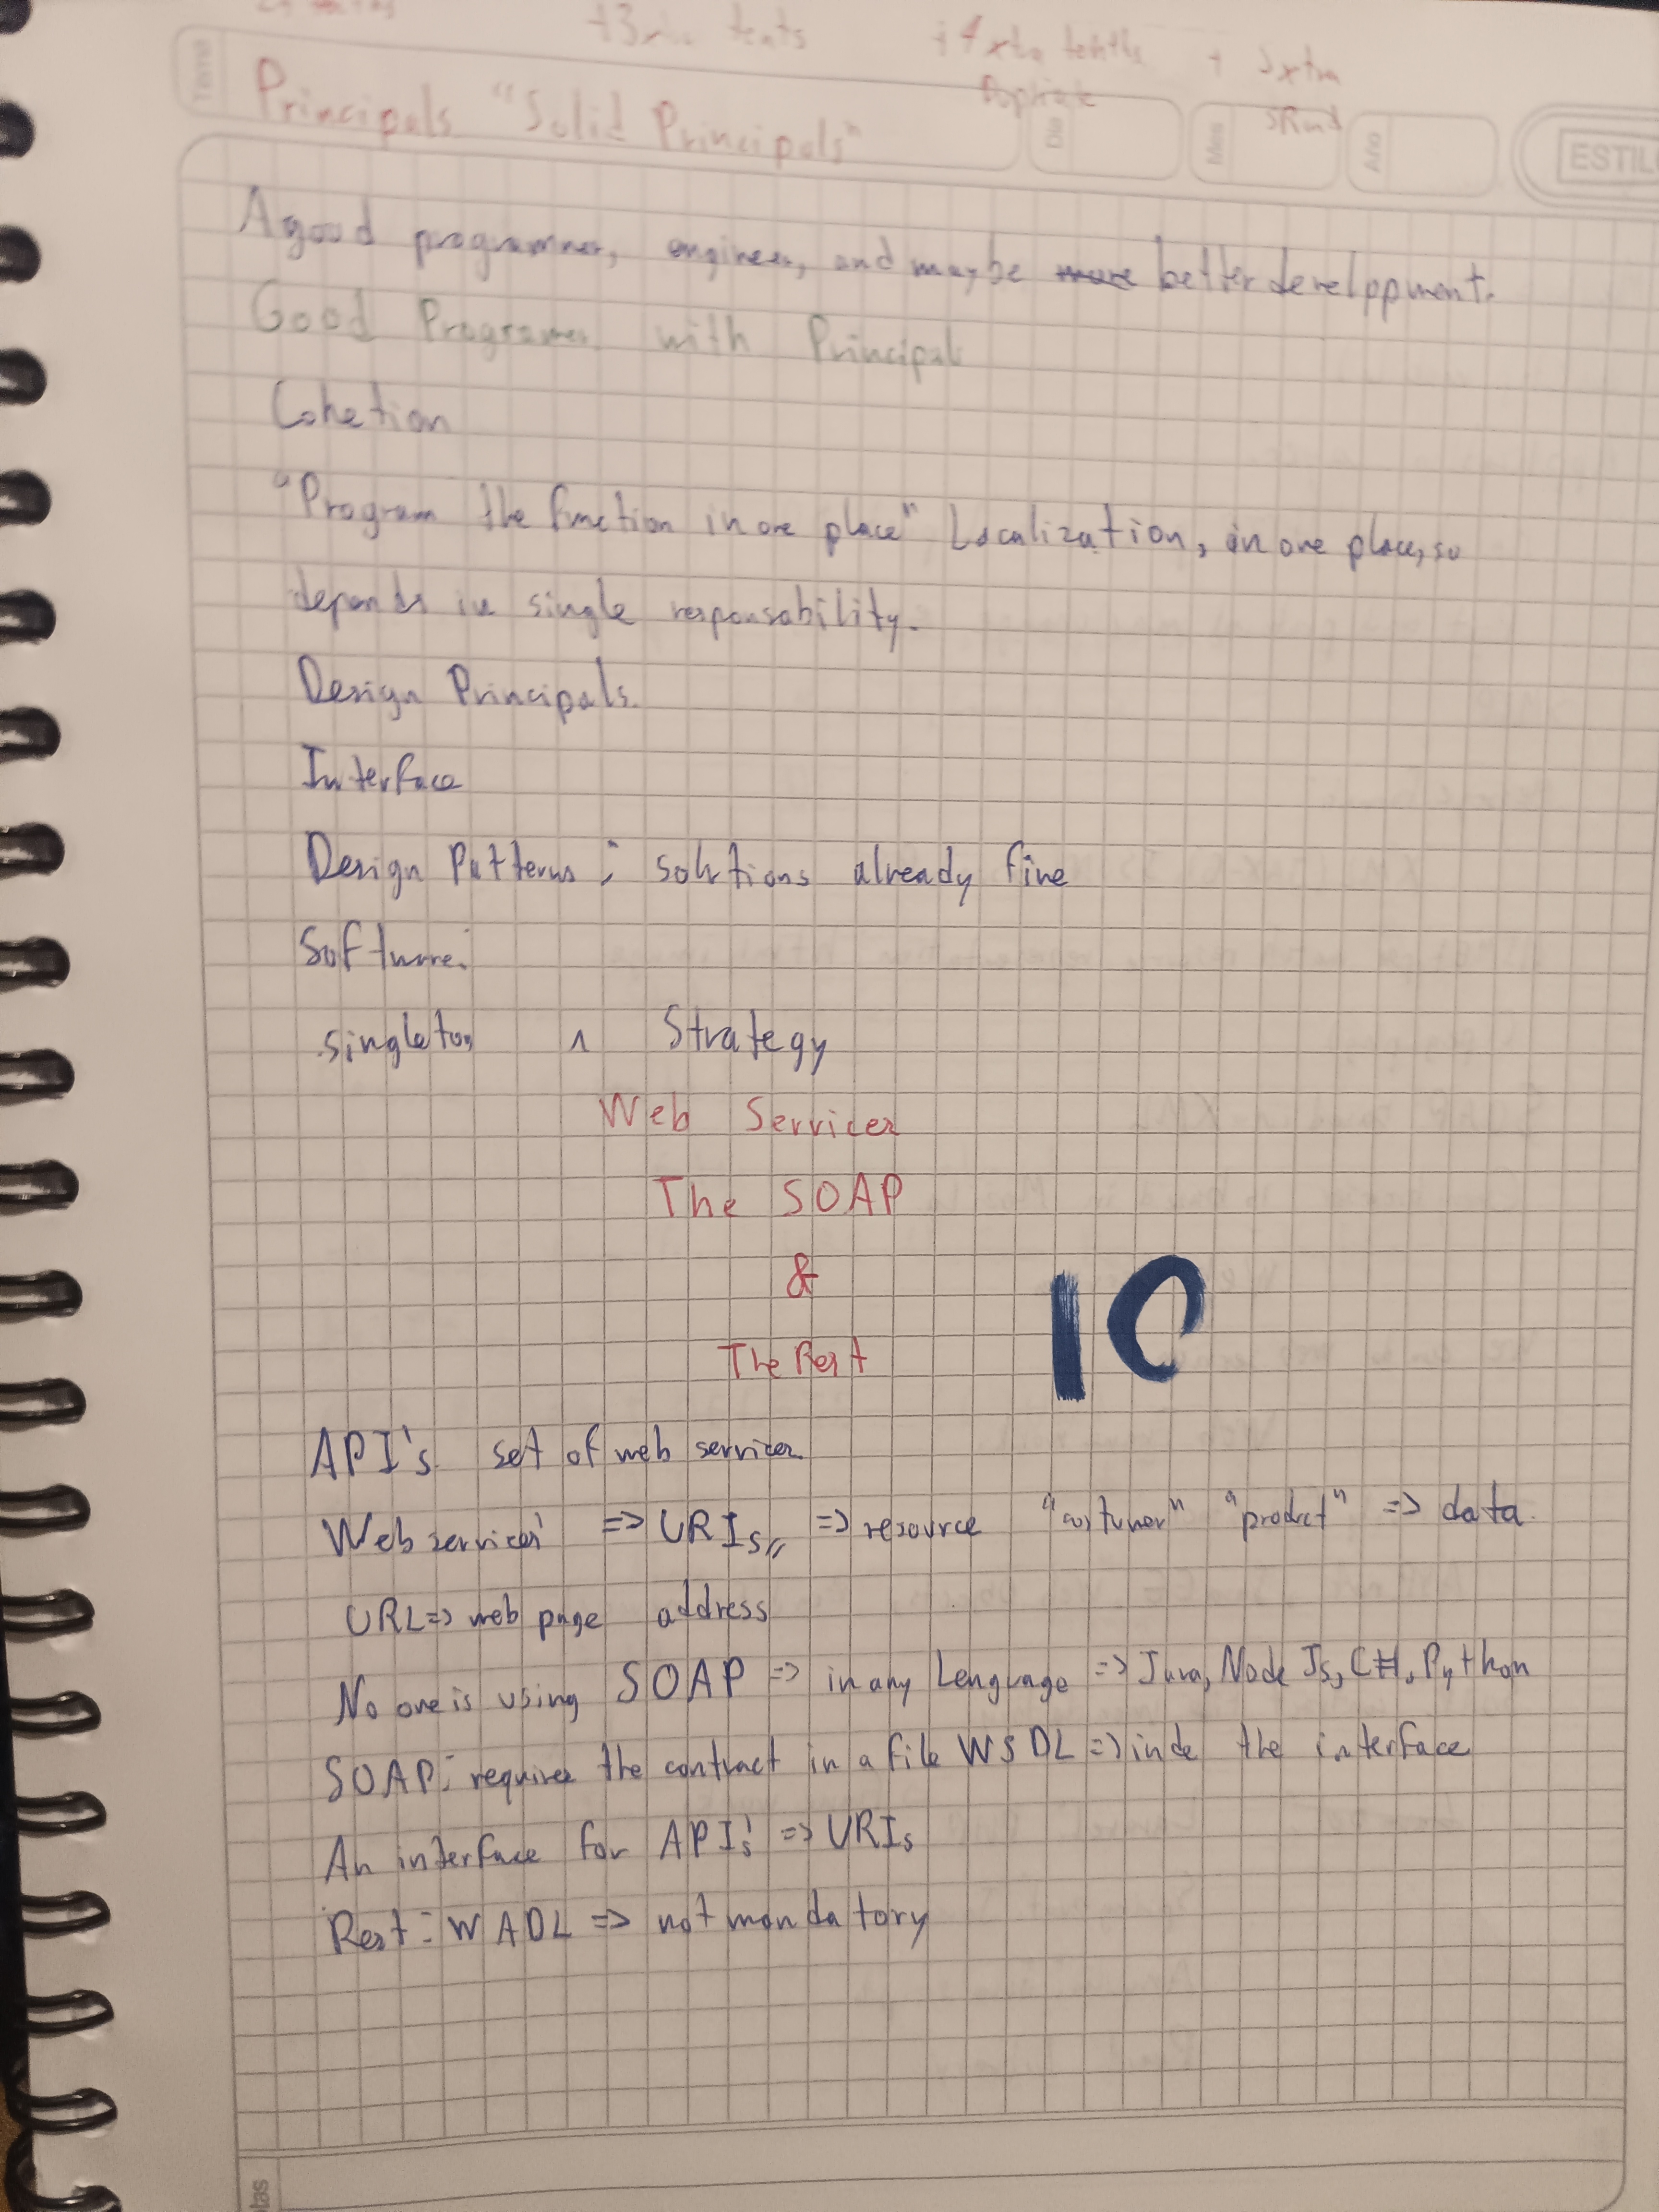 +3xtra tents +4 xtra tenths + 3xtra
Tema Principals "Solid Principals" Día Mes SRand Año ESTILO
A good programmer, engineer, and maybe more better develppment.
Good Programer with Principal
Cohetion
"Program the function in one place" Localization, in one place, so
depends in single responsability.
Design Principals.
Interface
Design Patterns: solutions already fine
Software:
singleton ^ Strategy
Web Services
The SOAP
&
The Rest
10
API's set of web services
Web services' => URIs,, => resource "costumer" "product" => data
URL => web page address
No one is using SOAP => in any Lenguage => Java, Node Js, C#, Python
SOAP: requires the contract in a file WSDL => inde the interface
An interface for API's => URIs
Rest: WADL => not mandatory